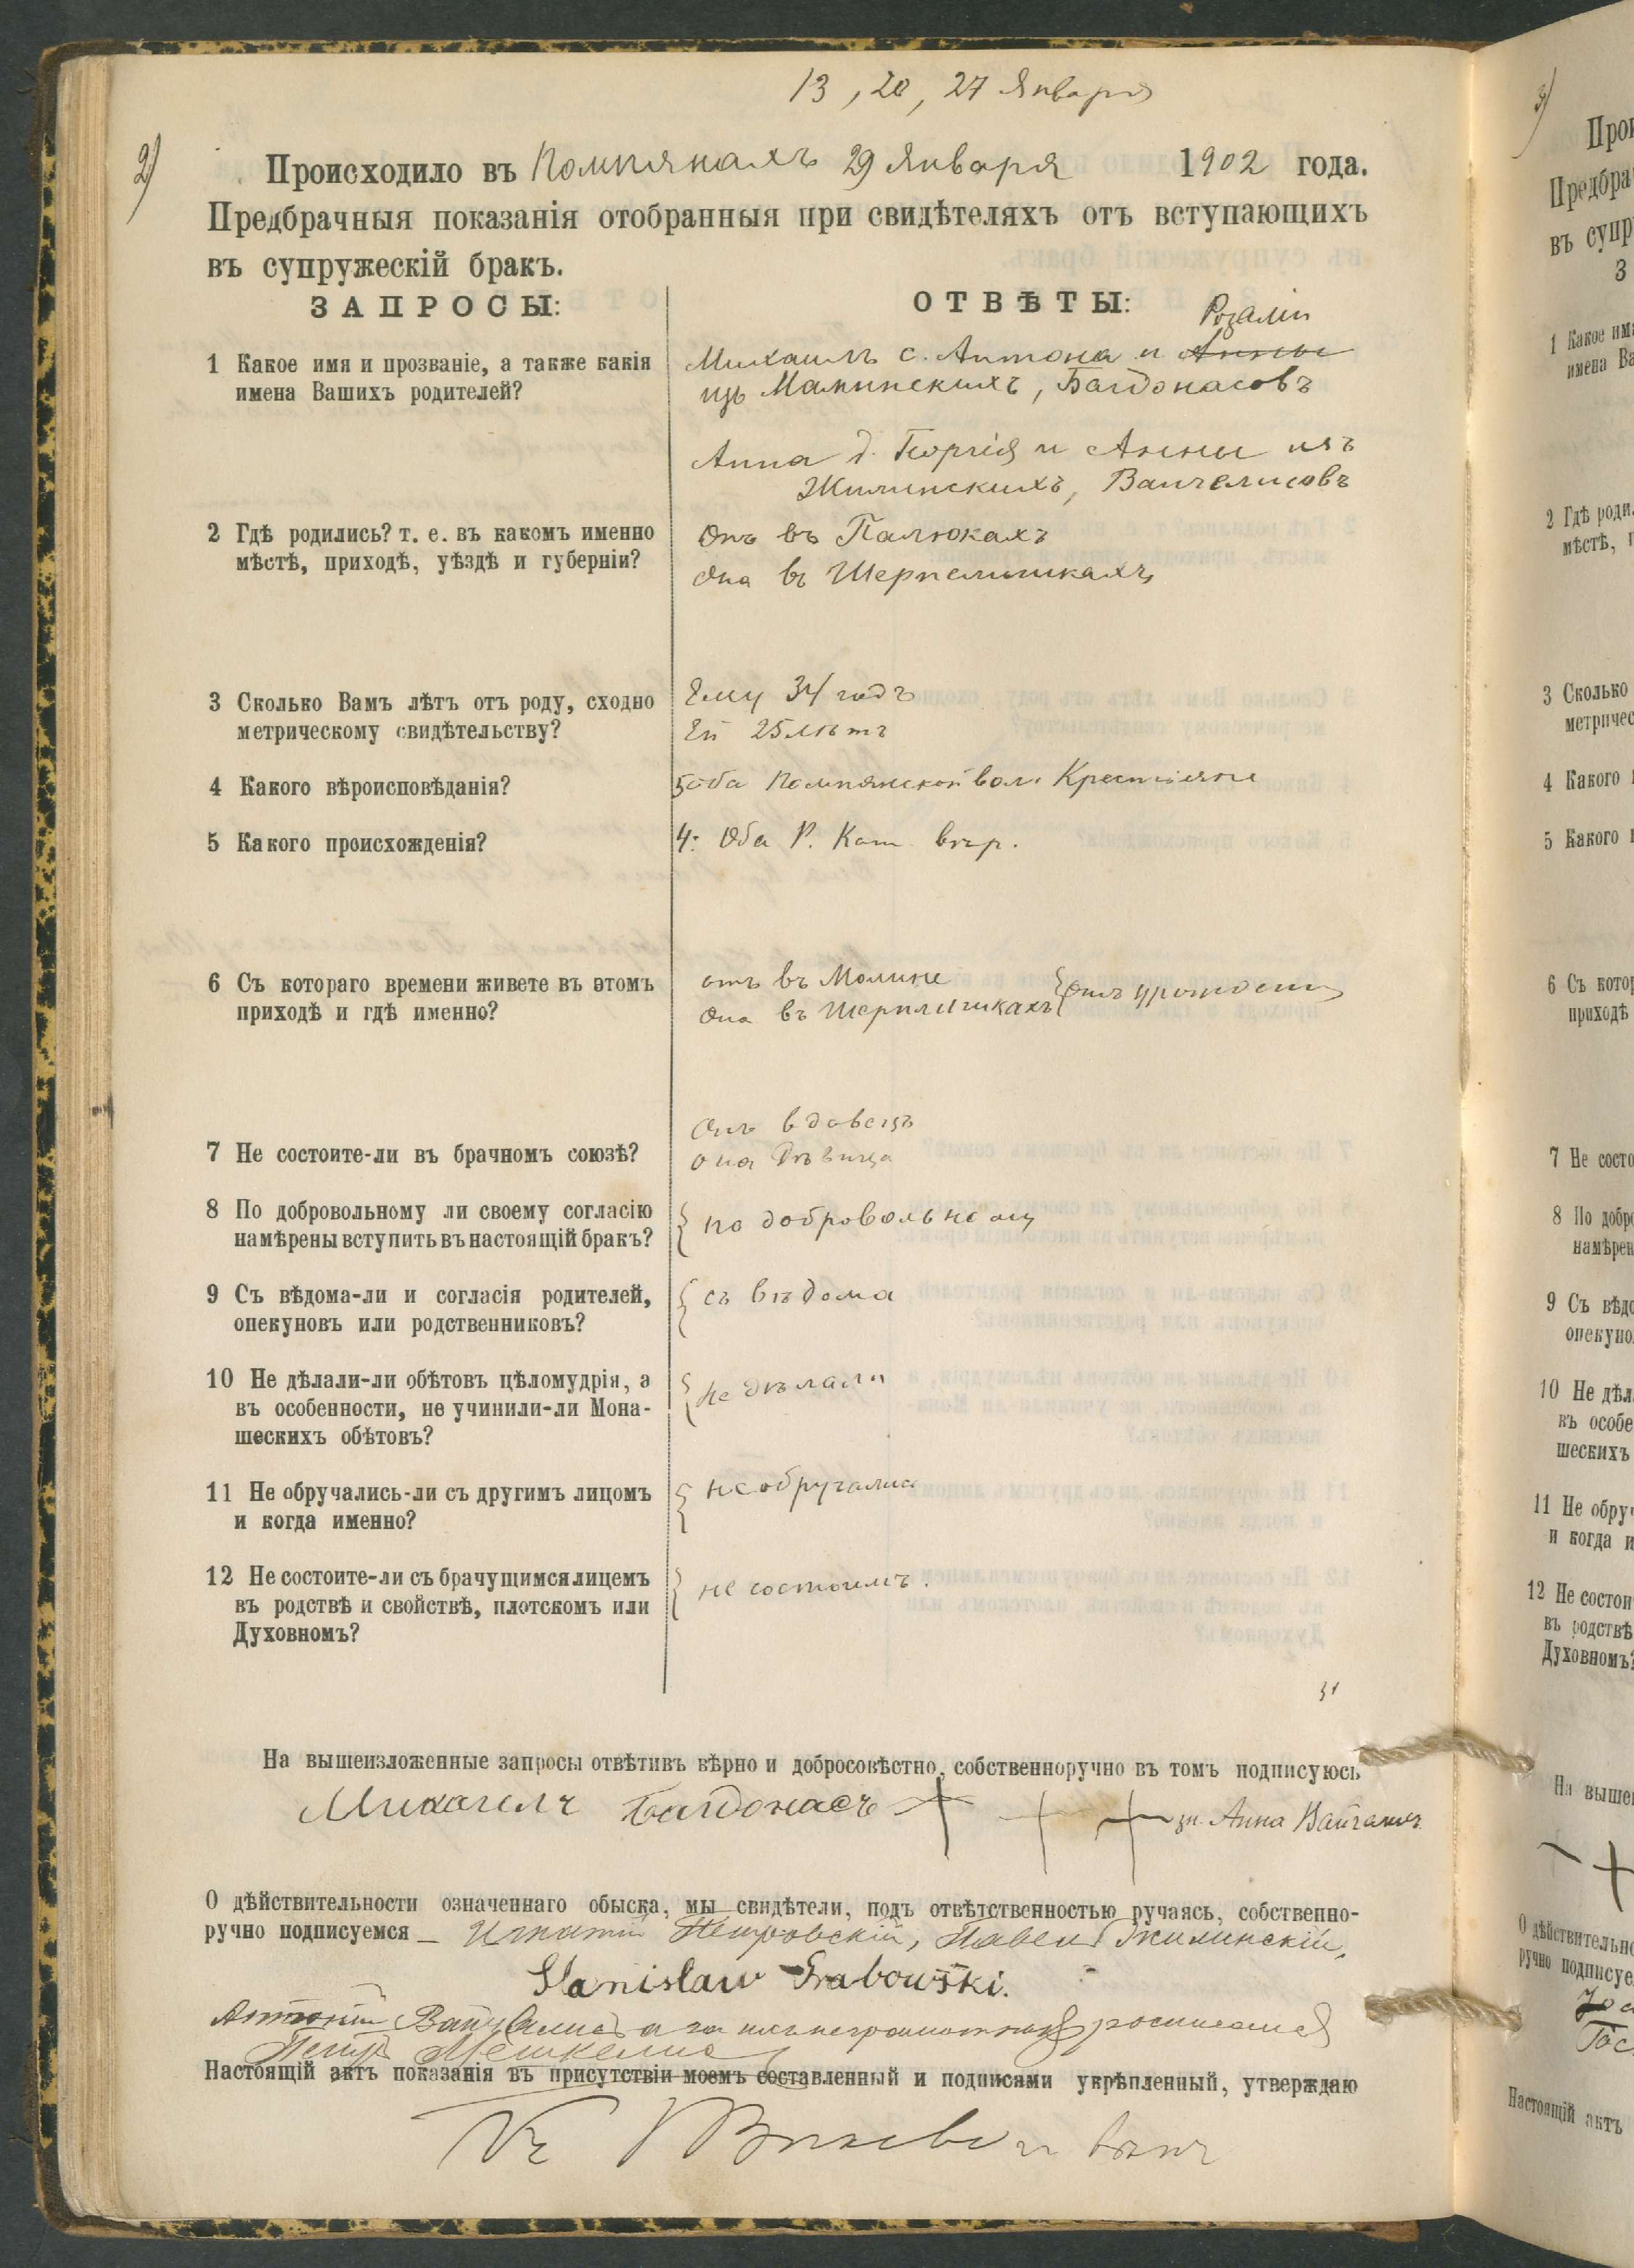 13, 20, 27 Января
2) Происходило въ Помпянахъ 29 Января 1902 года.
Предбрачныя показанія отобранныя при свидѣтеляхъ отъ вступающихъ
въ супружескій бракъ.
ЗАПРОСЫ: ОТВѢТЫ:
Розаліи
1 Какое имя и прозваніе, а также какія
имена Вашихъ родителей?
Михаилъ с. Антона и Анны
изъ Малинскихъ, Багдонасовъ
Анна д. Георгія и Анны изъ
Жилинскихъ, Вайчелисовъ
2 Гдѣ родились? т. е. въ какомъ именно
мѣстѣ, приходѣ, уѣздѣ и губерніи?
Онъ въ Палюкахъ
Она въ
3 Сколько Вамъ лѣтъ отъ роду, сходно
метрическому свидѣтельству?
Ему 34 годъ
Ей 25 лѣтъ
4 Какого вѣроисповѣданія?
5 оба Помпянской вол. Крестьяне
5 Какого происхожденія?
4. Оба Р. Кат. вѣр.
6 Съ котораго времени живете въ этомъ
приходѣ и гдѣ именно?
онъ въ
Она въ
7 Не состоите-ли въ брачномъ союзѣ?
Онъ вдовецъ
она Дѣвица
8 По добровольному ли своему согласію
намѣрены вступить въ настоящій бракъ?
по добровольному
9 Съ вѣдома-ли и согласія родителей,
опекуновъ или родственниковъ?
съ вѣдома
10 Не дѣлали-ли обѣтовъ цѣломудрія, а
въ особенности, не учинили-ли Мона-
шескихъ обѣтовъ?
не дѣлали
11 Не обручались-ли съ другимъ лицомъ
и когда именно?
не обручались
12 Не состоите-ли съ брачущимся лицемъ
въ родствѣ и свойствѣ, плотскомъ или
Духовномъ?
не состоимъ.
На вышеизложенные запросы отвѣтивъ вѣрно и добросовѣстно, собственноручно въ томъ подписуюсь
Михаелъ Багдонасъ + + + зн. Анна
О дѣйствительности означеннаго обыска, мы свидѣтели, подъ отвѣтственностью ручаясь, собственно-
ручно подписуемся – Игнатій Петровскій, Павелъ Жилинскій,
Stanisław Grabowski.
Антоній а за ихъ неграмотныхъ росписался
Петръ Мешкелис
Настоящій актъ показанія въ присутствіи моемъ составленный и подписями укрѣпленный, утверждаю
3)
Прои
Предбра
въ супр
З
1 Какое им
имена Ва
2 Гдѣ роди
мѣстѣ, п
3 Сколько
метричес
4 Какого
5 Какого
6 Съ котор
приходѣ
7 Не состо
8 По добро
намѣрен
9 Съ вѣдо
опекуно
10 Не дѣл
въ особе
шескихъ
11 Не обру
и когда и
12 Не состои
въ родствѣ
Духовномъ?
На выше
О дѣйствительно
ручно подписуе
Настоящій актъ